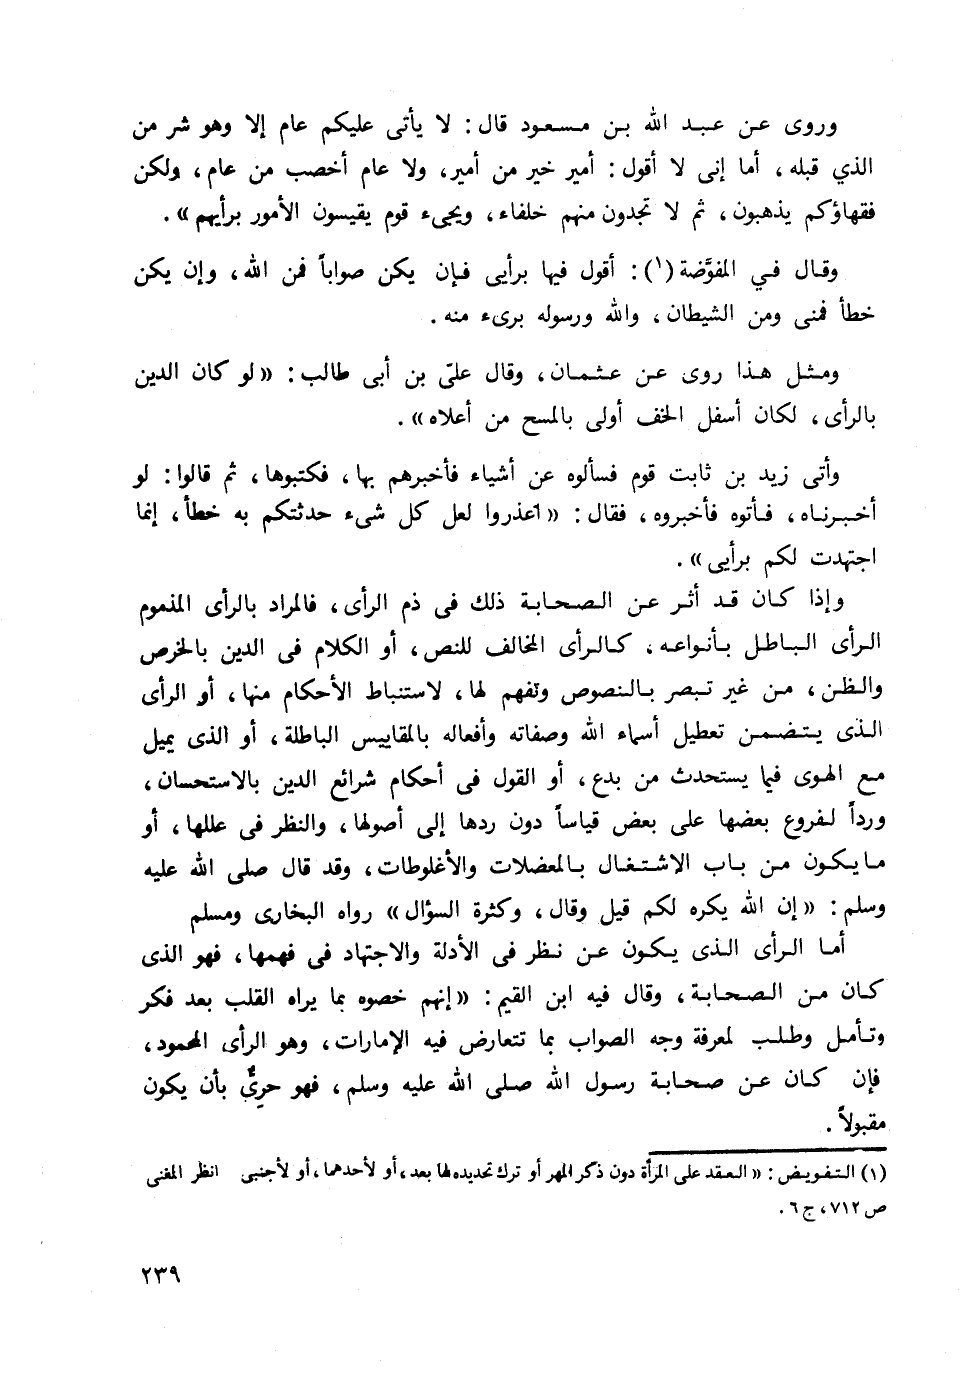 وروى عن عبد الله بن مسعود قال: لا يأتى عليكم عام إلا وهو شر من
الذي قبله، أما إنى لا أقول: أمير خير من أمير، ولا عام أخصب من عام، ولكن
فقهاؤكم يذهبون، ثم لا تجدون منهم خلفاء، ويجىء قوم يقيسون الأمور برأيهم».
وقال في المفوَّضة(١): أقول فيها برأيى فإن يكن صواباً فمن الله، وإن يكن
خطأ فمنى ومن الشيطان، والله ورسوله برىء منه.
ومثل هذا روى عن عثمان، وقال علىّ بن أبى طالب: «لو كان الدين
بالرأى، لكان أسفل الخف أولى بالمسح من أعلاه».
وأتى زيد بن ثابت قوم فسألوه عن أشياء فأخبرهم بها، فكتبوها، ثم قالوا: لو
أخبرناه، فأتوه فأخبروه، فقال: «اعذروا لعل كل شىء حدثتكم به خطأ، إنما
اجتهدت لكم برأيى».
وإذا كان قد أثر عن الصحابة ذلك فى ذم الرأى، فالمراد بالرأى المذموم
الرأى الباطل بأنواعه، كالرأى المخالف للنص، أو الكلام فى الدين بالخرص
والظن، من غير تبصر بالنصوص وتفهم لها، لاستنباط الأحكام منها، أو الرأى
الذى يتضمن تعطيل أسماء الله وصفاته وأفعاله بالمقاييس الباطلة، أو الذى يميل
مع الهوى فيما يستحدث من بدع، أو القول فى أحكام شرائع الدين بالاستحسان،
ورداً لفروع بعضها على بعض قياساً دون ردها إلى أصولها، والنظر فى عللها، أو
ما يكون من باب الاشتغال بالمعضلات والأغلوطات، وقد قال صلى الله عليه
وسلم: «إن الله يكره لكم قيل وقال، وكثرة السؤال» رواه البخارى ومسلم
أما الرأى الذى يكون عن نظر فى الأدلة والاجتهاد فى فهمها، فهو الذى
كان من الصحابة، وقال فيه ابن القيم: «إنهم خصوه بما يراه القلب بعد فكر
وتأمل وطلب لمعرفة وجه الصواب بما تتعارض فيه الإمارات، وهو الرأى المحمود،
فإن كان عن صحابة رسول الله صلى الله عليه وسلم، فهو حرىٌّ بأن يكون
مقبولاً.
(١) التفويض: «العقد على المرأة دون ذكر المهر أو ترك تحديده لها بعد، أو لأحدهما، أو لأجنبى انظر المغنى
ص ٧١٢، ج ٦.
٢٣٩